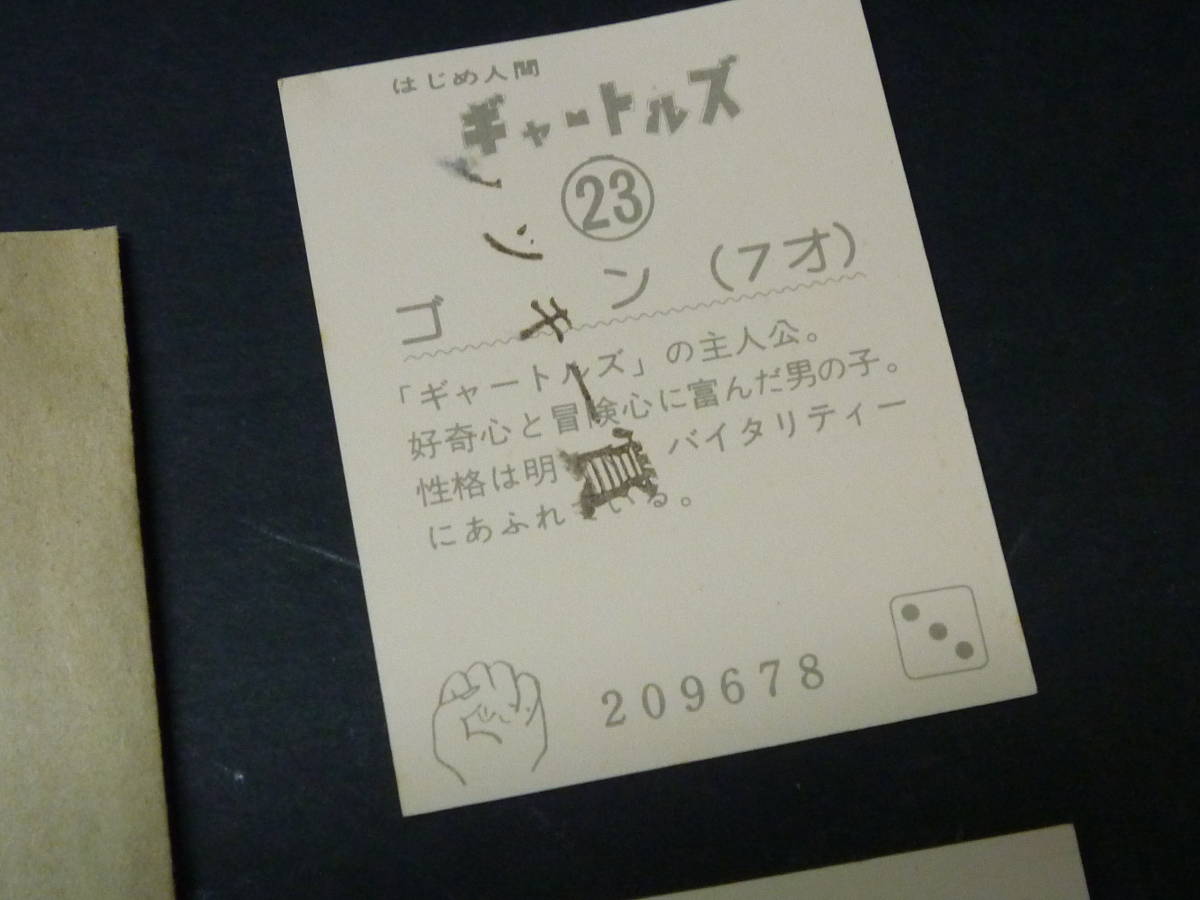 はじめ人間
ギャートルズ
23
ゴン(7才)
「ギャートルズ」の主人公。
好奇心と冒険心に富んだ男の子。
性格は明 バイタリティー
にあふれている。
209678